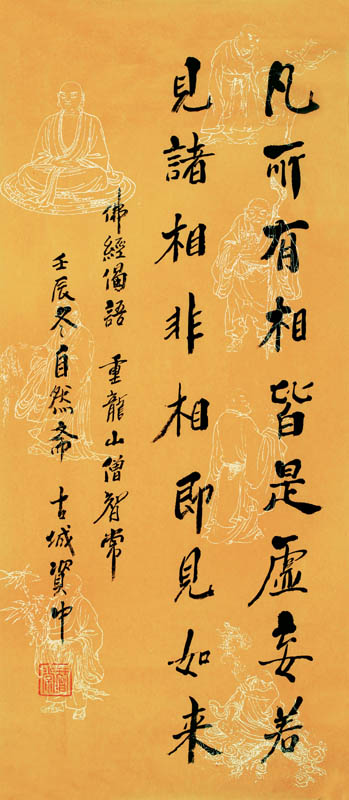 凡所有相皆是虛妄若
見諸相非相即見如来
佛經偈語 重龍山僧智常
壬辰冬自然斋 古城資中